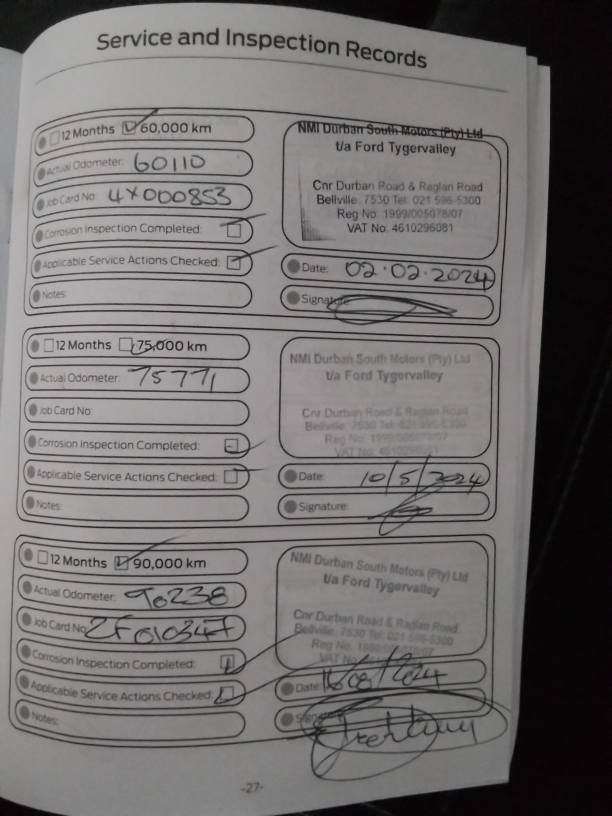 Service and Inspection Records
12 Months 60,000 km
Actual Odometer: 60110
Job Card No: 4X000853
Corrosion Inspection Completed:
Applicable Service Actions Checked:
Notes:
NMI Durban South Motors (Pty) Ltd
t/a Ford Tygervalley
Cnr Durban Road & Raglan Road
Bellville, 7530 Tel: 021 596-5300
Reg No: 1999/005078/07
VAT No: 4610296081
Date: 02.02.2024
Signature:
12 Months 75,000 km
Actual Odometer: 75771
Job Card No:
Corrosion Inspection Completed:
Applicable Service Actions Checked:
Notes:
NMI Durban South Motors (Pty) Ltd
t/a Ford Tygervalley
Cnr Durban Road & Raglan Road
Bellville, 7530 Tel: 021 596-5300
Reg No: 1999/005078/07
VAT No:
Date: 10/5/2024
Signature:
12 Months 90,000 km
Actual Odometer: 90238
Job Card No: ZF010347
Corrosion Inspection Completed:
Applicable Service Actions Checked:
Notes:
NMI Durban South Motors (Pty) Ltd
t/a Ford Tygervalley
Cnr Durban Road & Raglan Road
Bellville, 7530 Tel: 021 596-5300
Reg No:
VAT
Date:
-27-